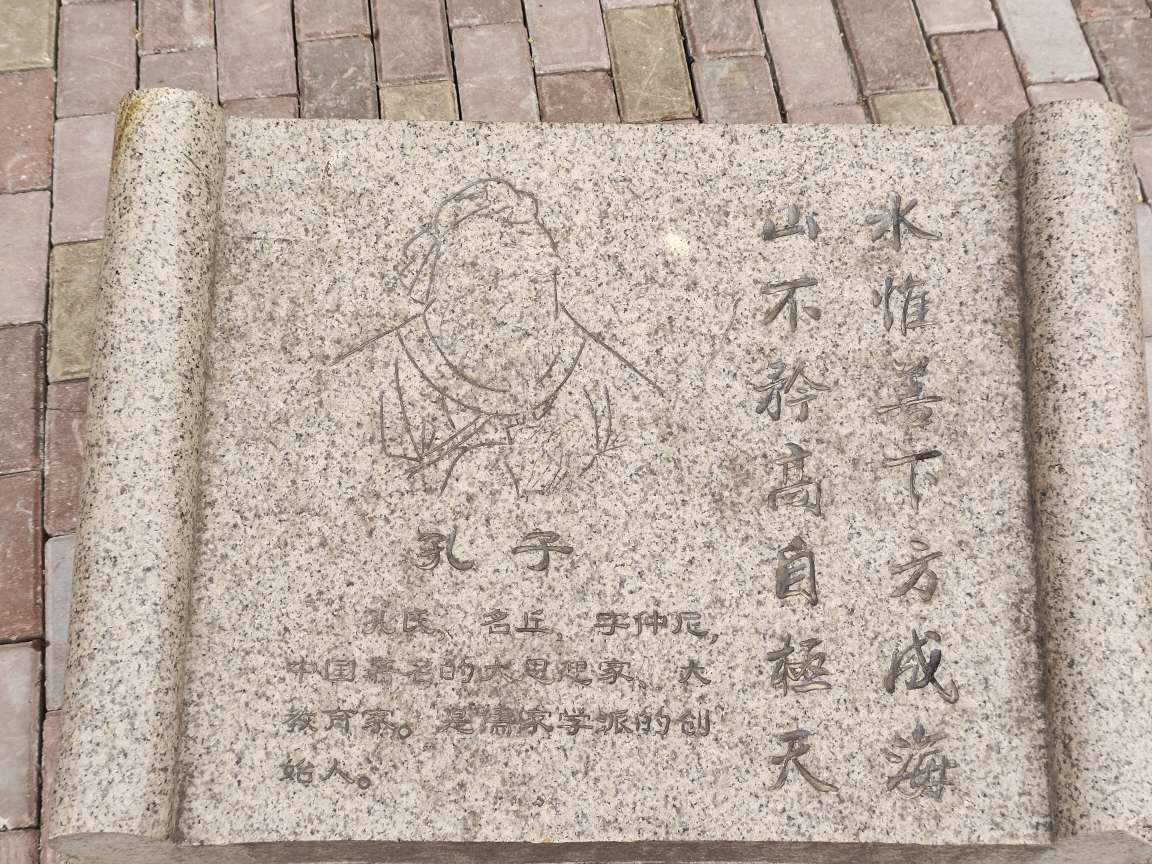 水惟善下方成海
山不矜高自極天
孔子
孔氏，名丘，字仲尼，
中国著名的大思想家、大
教育家。是儒家学派的创
始人。